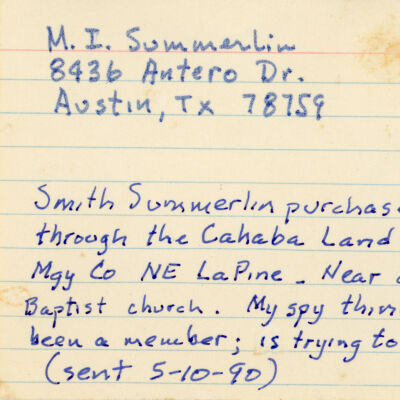 M. I. Summerlin
8436 Antero Dr.
Austin, Tx 78759
Smith Summerlin purchas
through the Cahaba Land
Mgy Co NE LaPine - Near
Baptist church. My spy thin
been a member; is trying to
(sent 5-10-90)